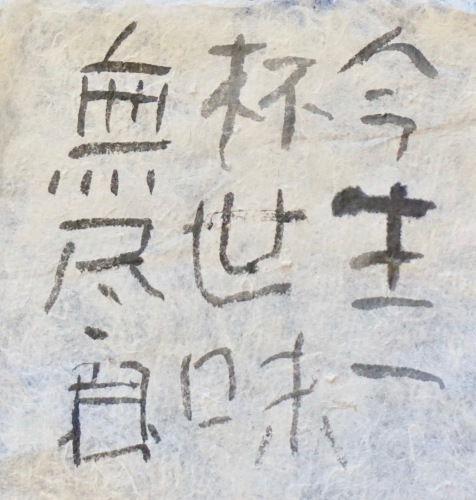 今生一
杯世味
無尽